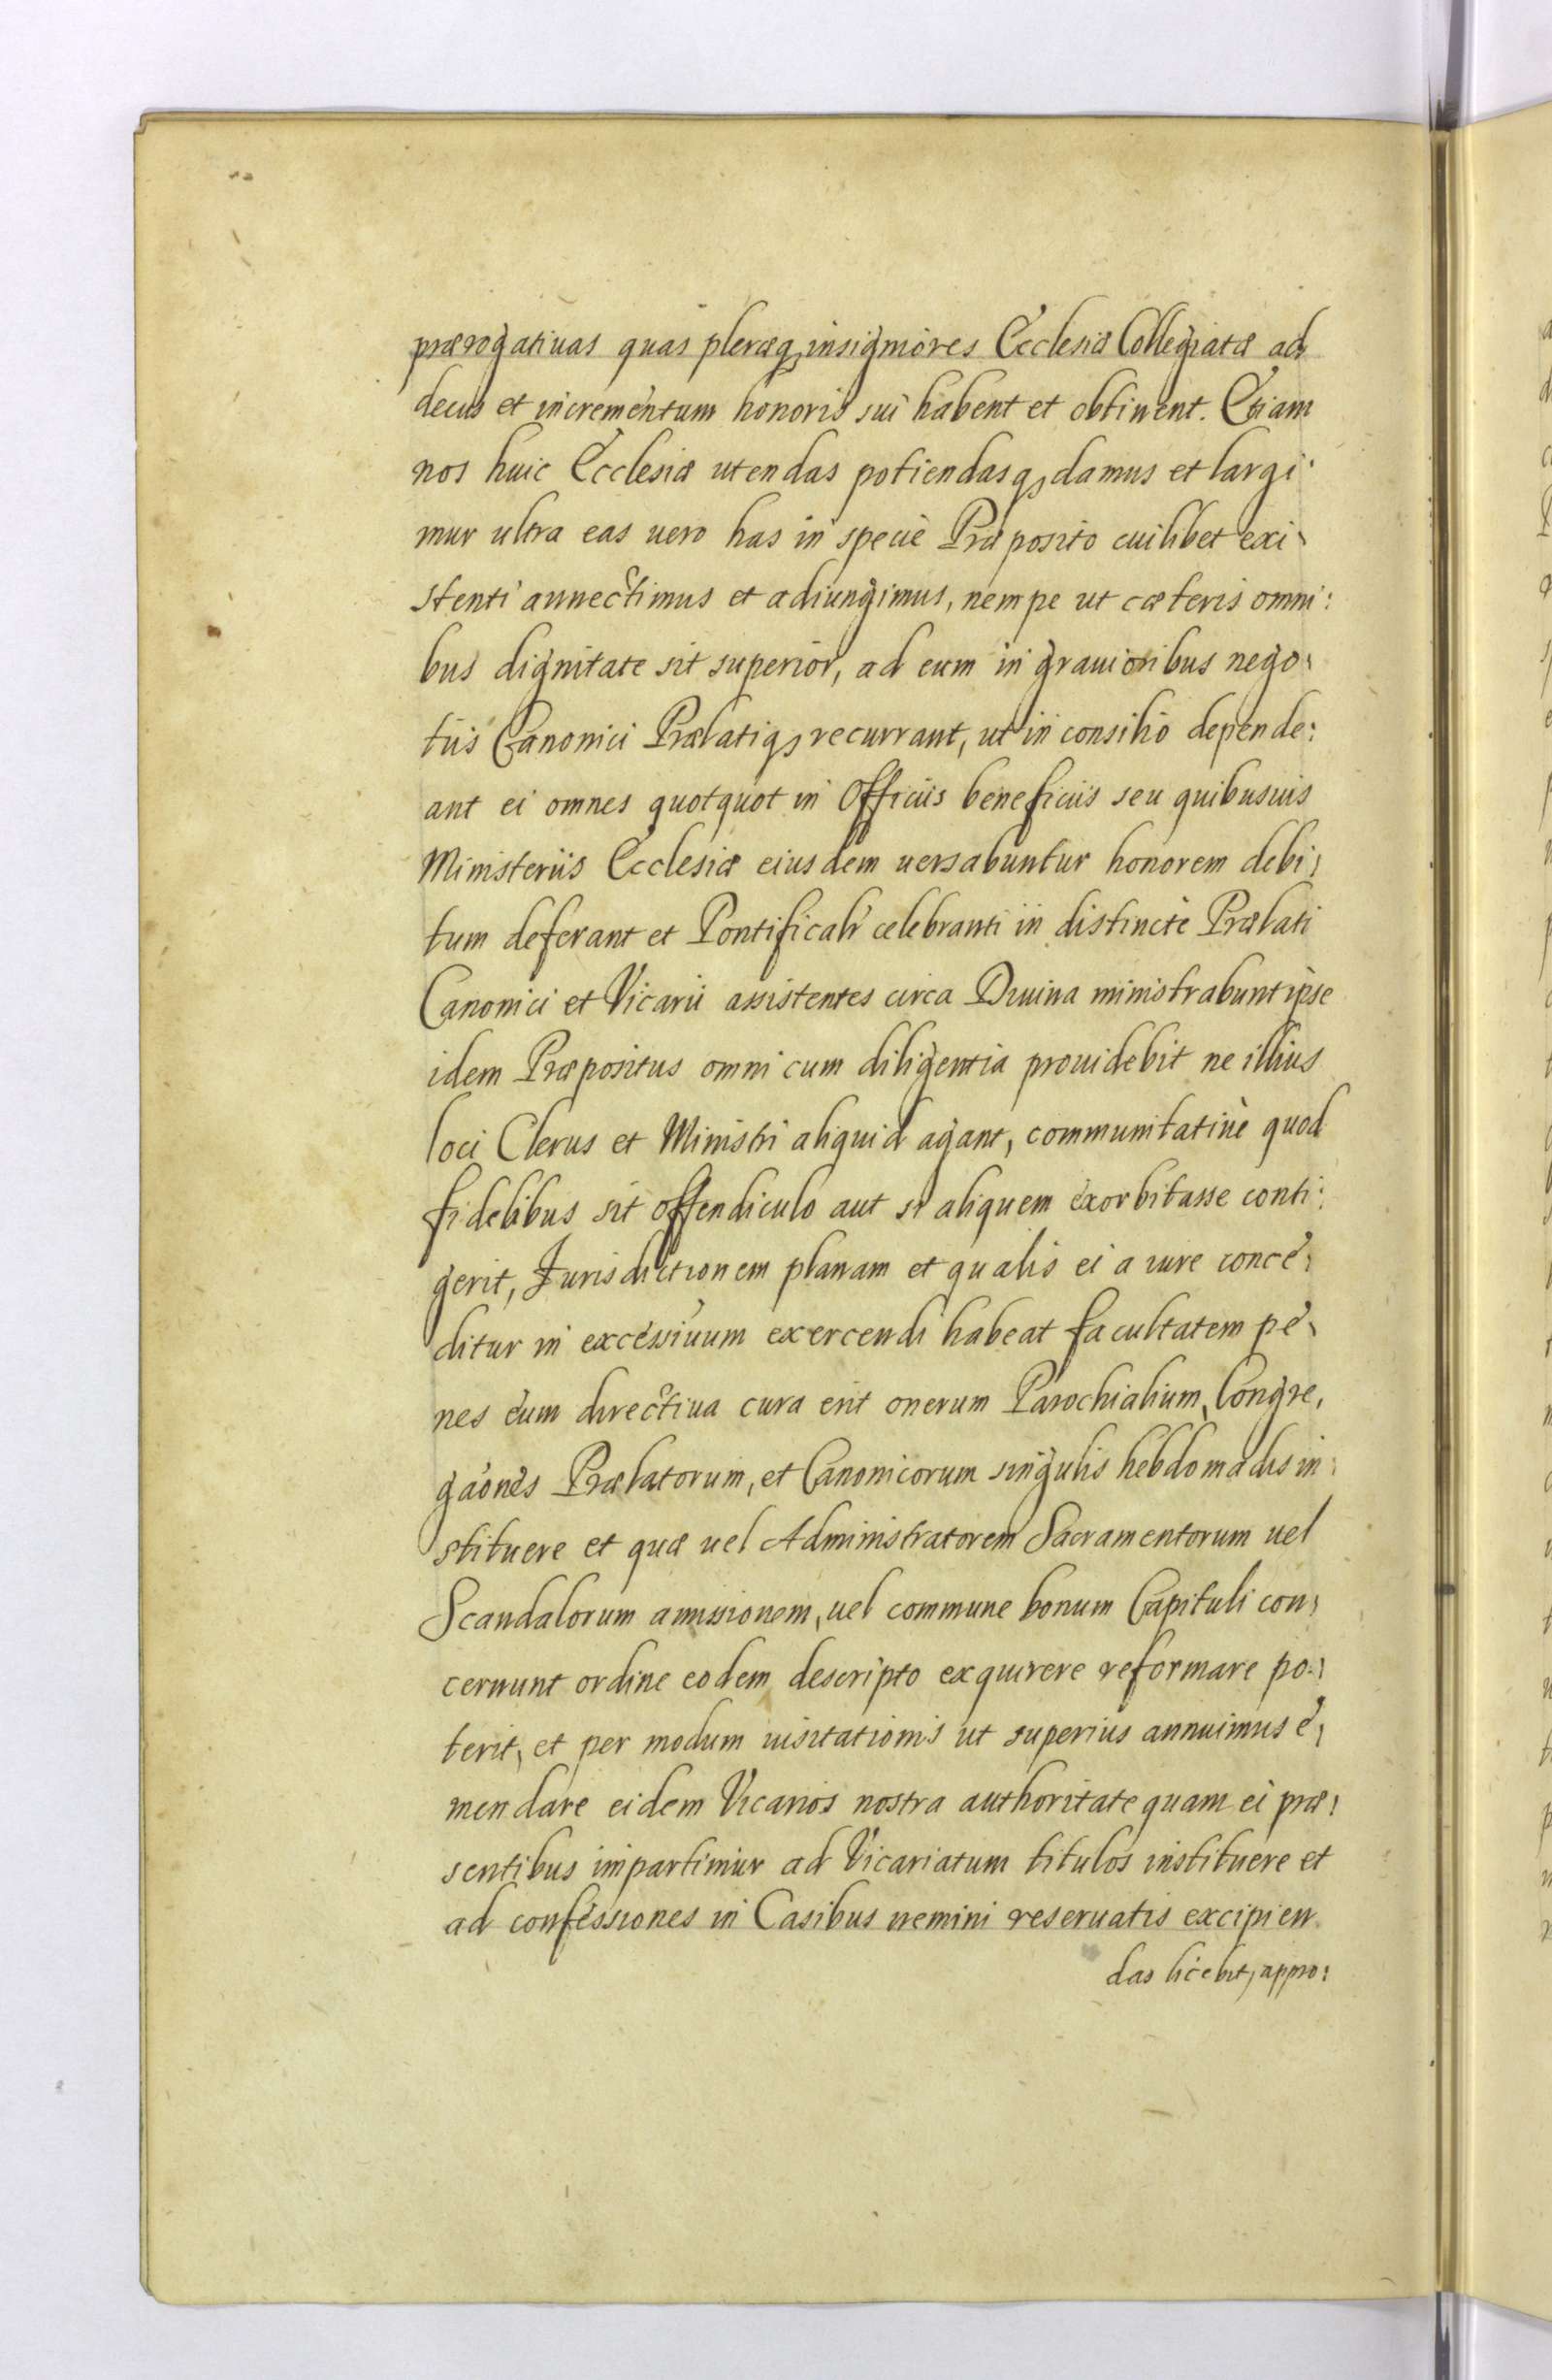 prærogatiuas quas pleræq; insigniores Ecclesiæ Collegiatæ ad
decus et incrementum honoris sui habent et obtinent. Etiam
nos huic Ecclesiæ utendas potiendasq; damus et largi:
mur ultra eas uero has in specie Præposito cuilibet exi:
stenti annectimus et adiungimus, nempe ut cæteris omni:
bus dignitate sit superior, ad eum in grauioribus nego:
tiis Canonici Prælatiq; recurrant, ut in consilio depende:
ant ei omnes quotquot in Officiis beneficiis seu quibusuis
Ministeriis Ecclesiæ eiusdem uersabuntur honorem debi:
tum deferant et Pontificali celebranti in distincte Prælati
Canonici et Vicarii assistentes circa Diuina ministrabunt ipse
idem Præpositus omni cum diligentia prouidebit ne illius
loci Clerus et Ministri aliquid agant, communitatiue quod
fidelibus sit offendiculo aut si aliquem exorbitasse conti:
gerit, Jurisdictionem planam et qualis ei a iure conce:
ditur in excessiuum exercendi habeat facultatem pe:
nes eum directiua cura erit onerum Parochialium, Congre,
gaones Prælatorum, et Canonicorum singulis hebdomadis in:
stituere et quæ uel Administratorem Sacramentorum uel
Scandalorum amissionem, uel commune bonum Capituli con:
cernunt ordine eodem descripto exquirere reformare po:
terit, et per modum uisitationis ut superius annuimus e:
mendare eidem Vicarios nostra authoritate quam ei præ:
sentibus impartimur ad Vicariatum titulos instituere et
ad confessiones in Casibus nemini reseruatis excipien
das licebit, appro: